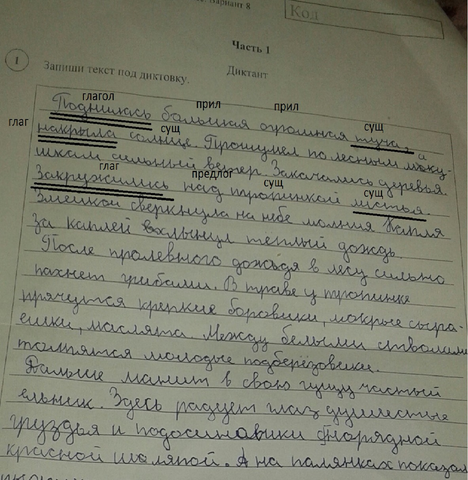 Вариант 8
Код
Часть 1
1 Запиши текст под диктовку. Диктант
глагол прил прил
Поднялась большая огромная туча, а
глаг сущ сущ
накрыла солнце. Прошумел по лесным маку-
шкам сильный ветер. Закачались деревья.
глаг предлог сущ сущ
Закружились над тропинкой листья
Змейкой сверкнула на небе молния Капля
за каплей хлынул теплый дождь
После проливного дождя в лесу сильно
пахнет грибами. В траве у тропинке
прячутся крепкие боровики, мокрые сыро-
ешки, маслята. Между белыми стволами
толпятся молодые подберёзовики.
Дальше манит в свою гущу частый
ельник. Здесь радует глаз душистые
груздья и подосиновики
красной шляпой. А на полянках показал